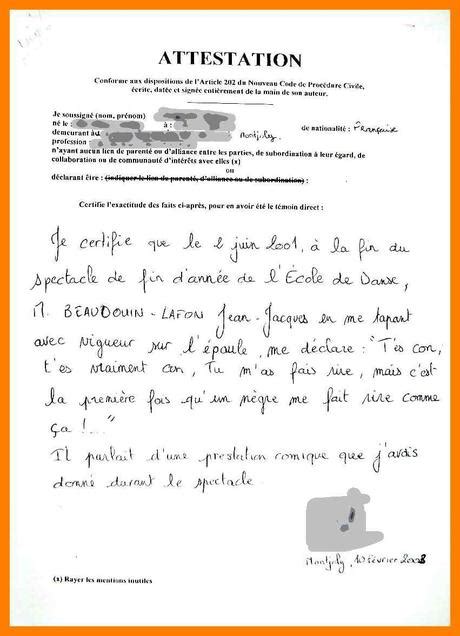 ATTESTATION
Conforme aux dispositions de l'Article 202 du Nouveau Code de Procédure Civile,
écrite, datée et signée entièrement de la main de son auteur.
Je soussigné (nom, prénom)
né le : à : de nationalité : Française
demeurant à Montjoly.
profession
n'ayant aucun lien de parenté ou d'alliance entre les parties, de subordination à leur égard, de
collaboration ou de communauté d'intérêts avec elles (x)
ou
déclarant être : (indiquer le lien de parenté, d'alliance ou de subordination) :
Certifie l'exactitude des faits ci-après, pour en avoir été le témoin direct :
Je certifie que le 2 juin 2001, à la fin du
spectacle de fin d'année de l'École de Danse,
M. BEAUDOUIN-LAFON Jean-Jacques en me tapant
avec vigueur sur l'épaule, me déclare : "T'es con,
t'es vraiment con, Tu m'as fais rire, mais c'est
la première fois qu'un nègre me fait rire comme
ça !..."
Il parlait d'une prestation comique que j'avais
donné durant le spectacle.
Montjoly, 10 Février 2008
(x) Rayer les mentions inutiles